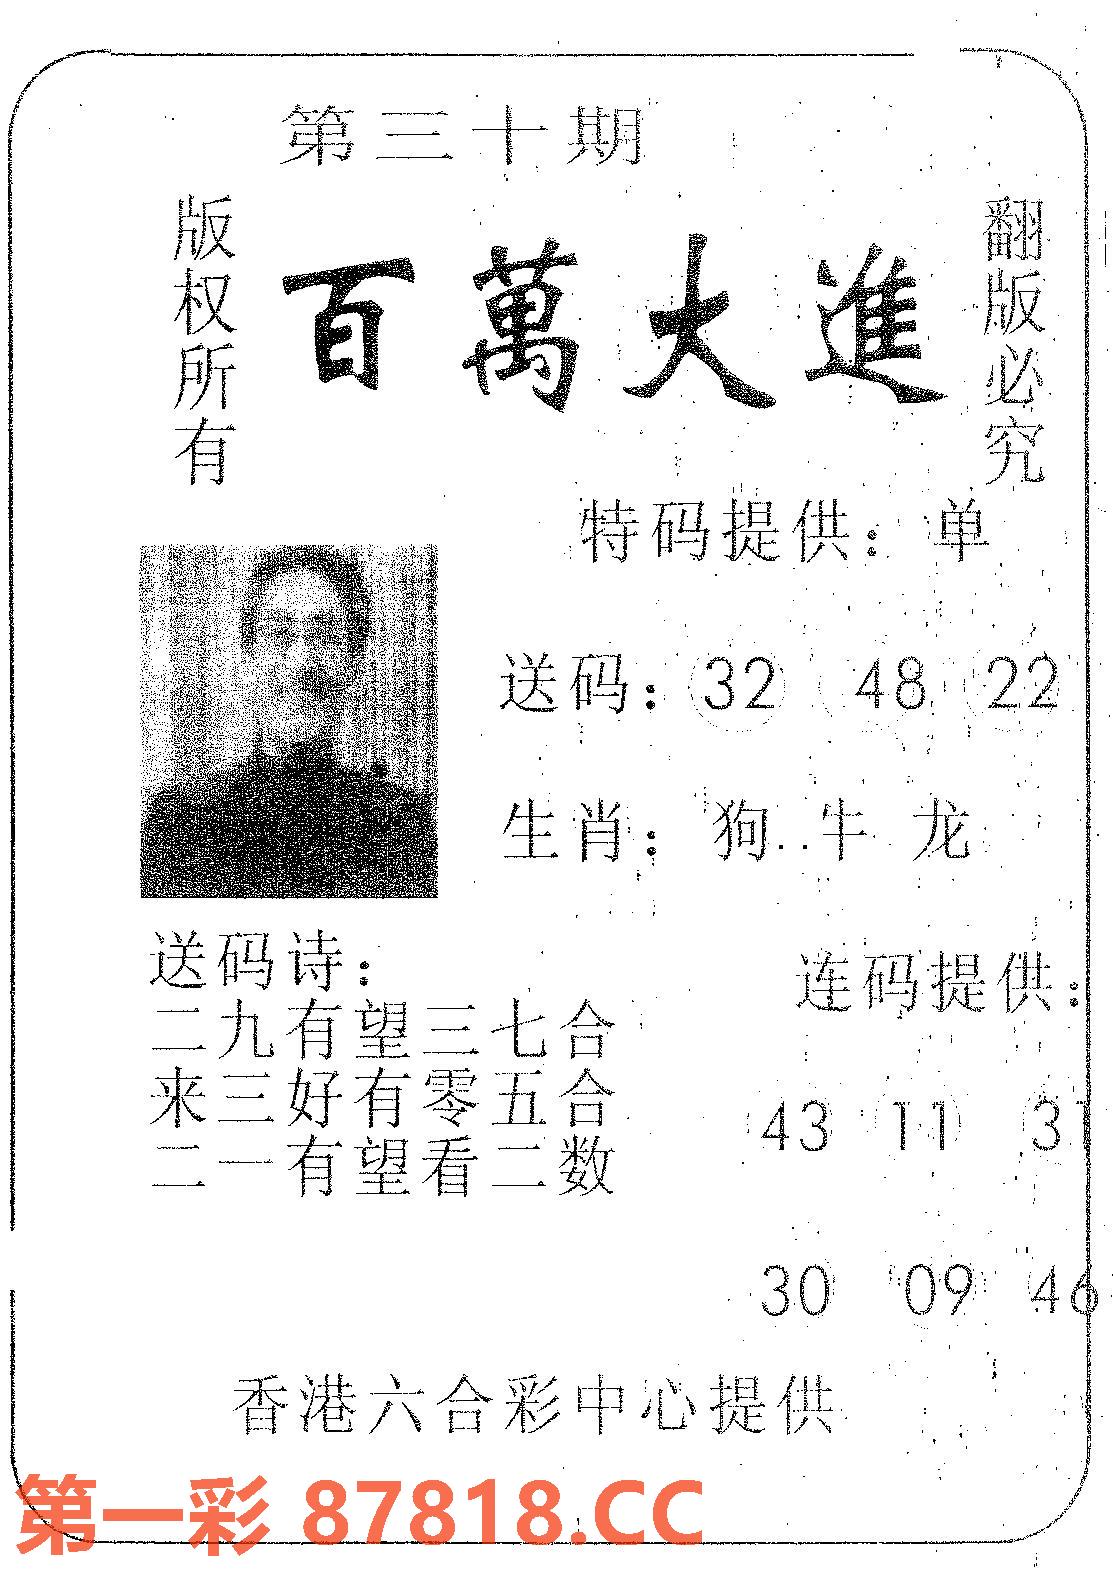 第三十期
版权所有
百萬大進
翻版必究
特码提供：单
送码：32 48 22
生肖：狗..牛 龙
送码诗：
二九有望三七合
来三好有零五合
二一有望看二数
连码提供：
43 11 31
30 09 46
香港六合彩中心提供
第一彩 87818.CC